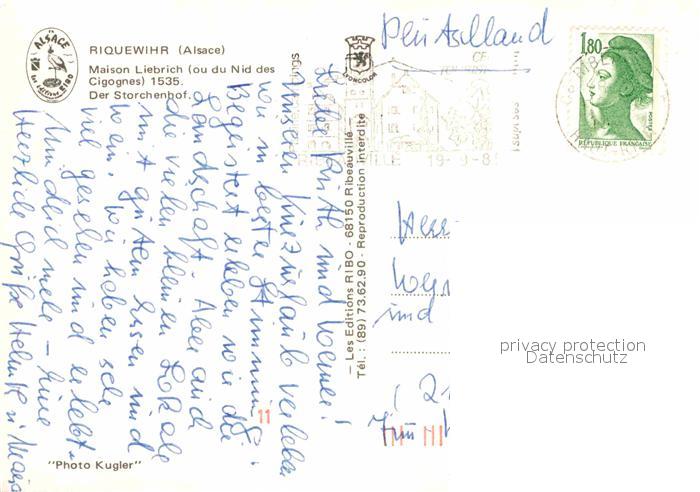 ALSACE
RIQUEWIHR (Alsace)
Maison Liebrich (ou du Nid des
Cigognes) 1535.
Der Storchenhof.
LYONCOLOR
Deutschland
1,80
POSTES
RÉPUBLIQUE FRANÇAISE
19-9-8
— Les Editions RIBO - 68150 Ribeauvillé —
Tél. : (89) 73.62.90 - Reproduction interdite
Liebe Ruth und Werner!
Unseren Kurzurlaub verleben
wir in bester Stimmung.
Begeistert erleben wir die
Landschaft. Aber auch
die vielen kleinen Lokale
mit gutem Essen und
Wein. Wir haben sehr
viel gesehen und erlebt.
Und viel mehr –
Herzliche Grüße Helmut u.
Herr
und
11
"Photo Kugler"
privacy protection
Datenschutz